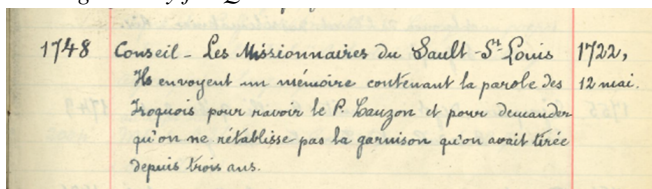 1748 Conseil - Les Missionnaires du Sault-St Louis 1722,
Ils envoyent un mémoire contenant la parole des 12 mai.
Iroquois pour ravoir le P. Lauzon et pour demander
qu'on ne rétablisse pas la garnison qu'on avait tirée
depuis trois ans.